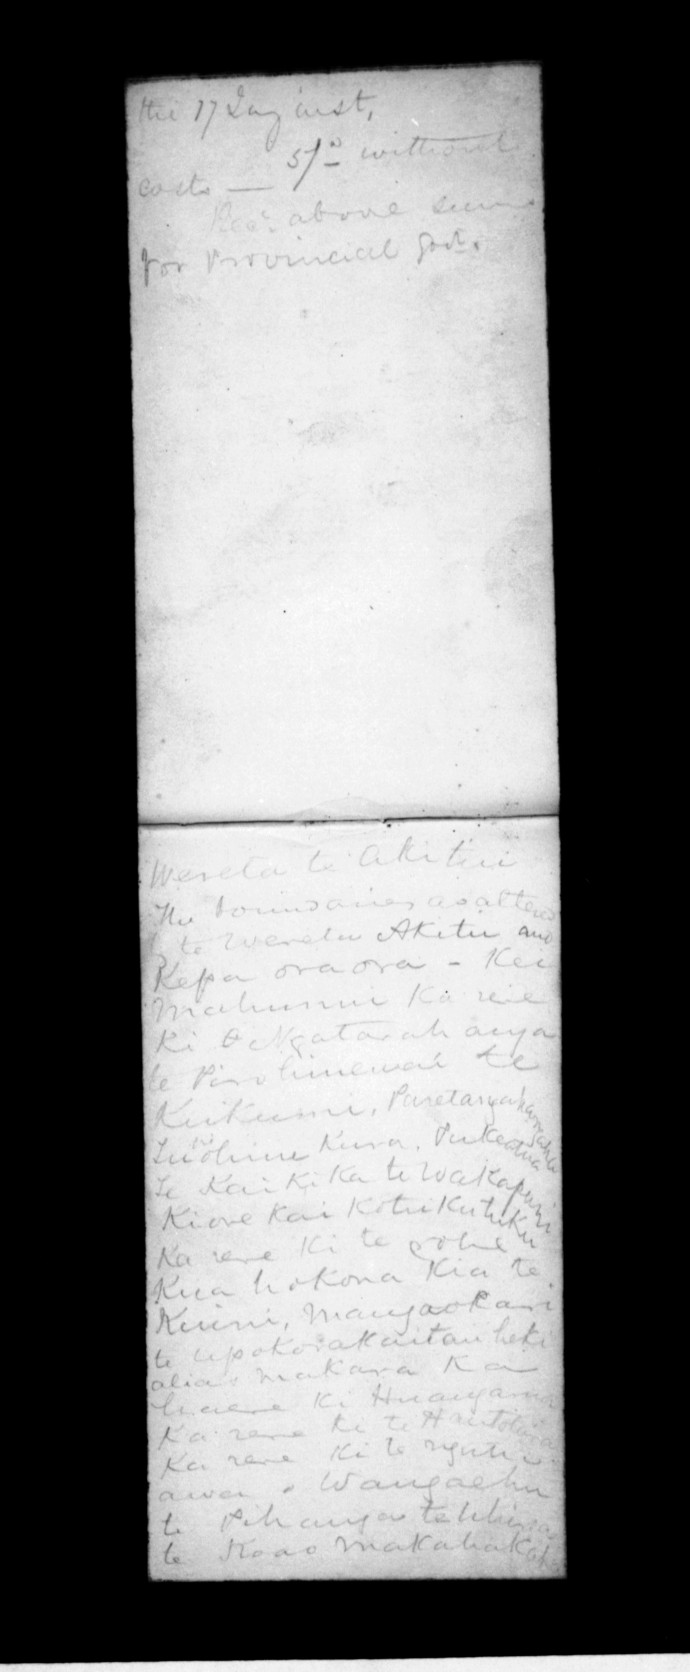 the 17 Jany inst,
5/- without
costs —
Rec. above sum
for Provincial Govt.
Wereta te Akitui
The boundaries as altered
by te Wereta Akitu and
Kepa oraora - Kei
Mahunui Ka rere
Ki Ngatarahanga
te Parohinewai te
Kuikuini, Paretangahangahu
Tuohine Kura, Pukeatua
Te Kaikika te Wakapuni
Kiore Kai Kotukutuku
Ka rere Ki te rohe
Kua hokona Kia te
Kuini, Mangaokari
te Upokorakaitauheki
alias Makara Ka
haere Ki Huangarua
Ka rere ki te
Ka rere Ki te ngutu
awa o Wangaehu
te Pihanga te
te Koao Makahaka